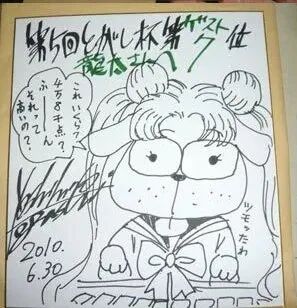 第5回とがし杯第7位
ゲスト
龍太さんへ
これいくら?
4千8千点?
ふーーん
それって
高いの?
ツモったわ
2010.
6.30